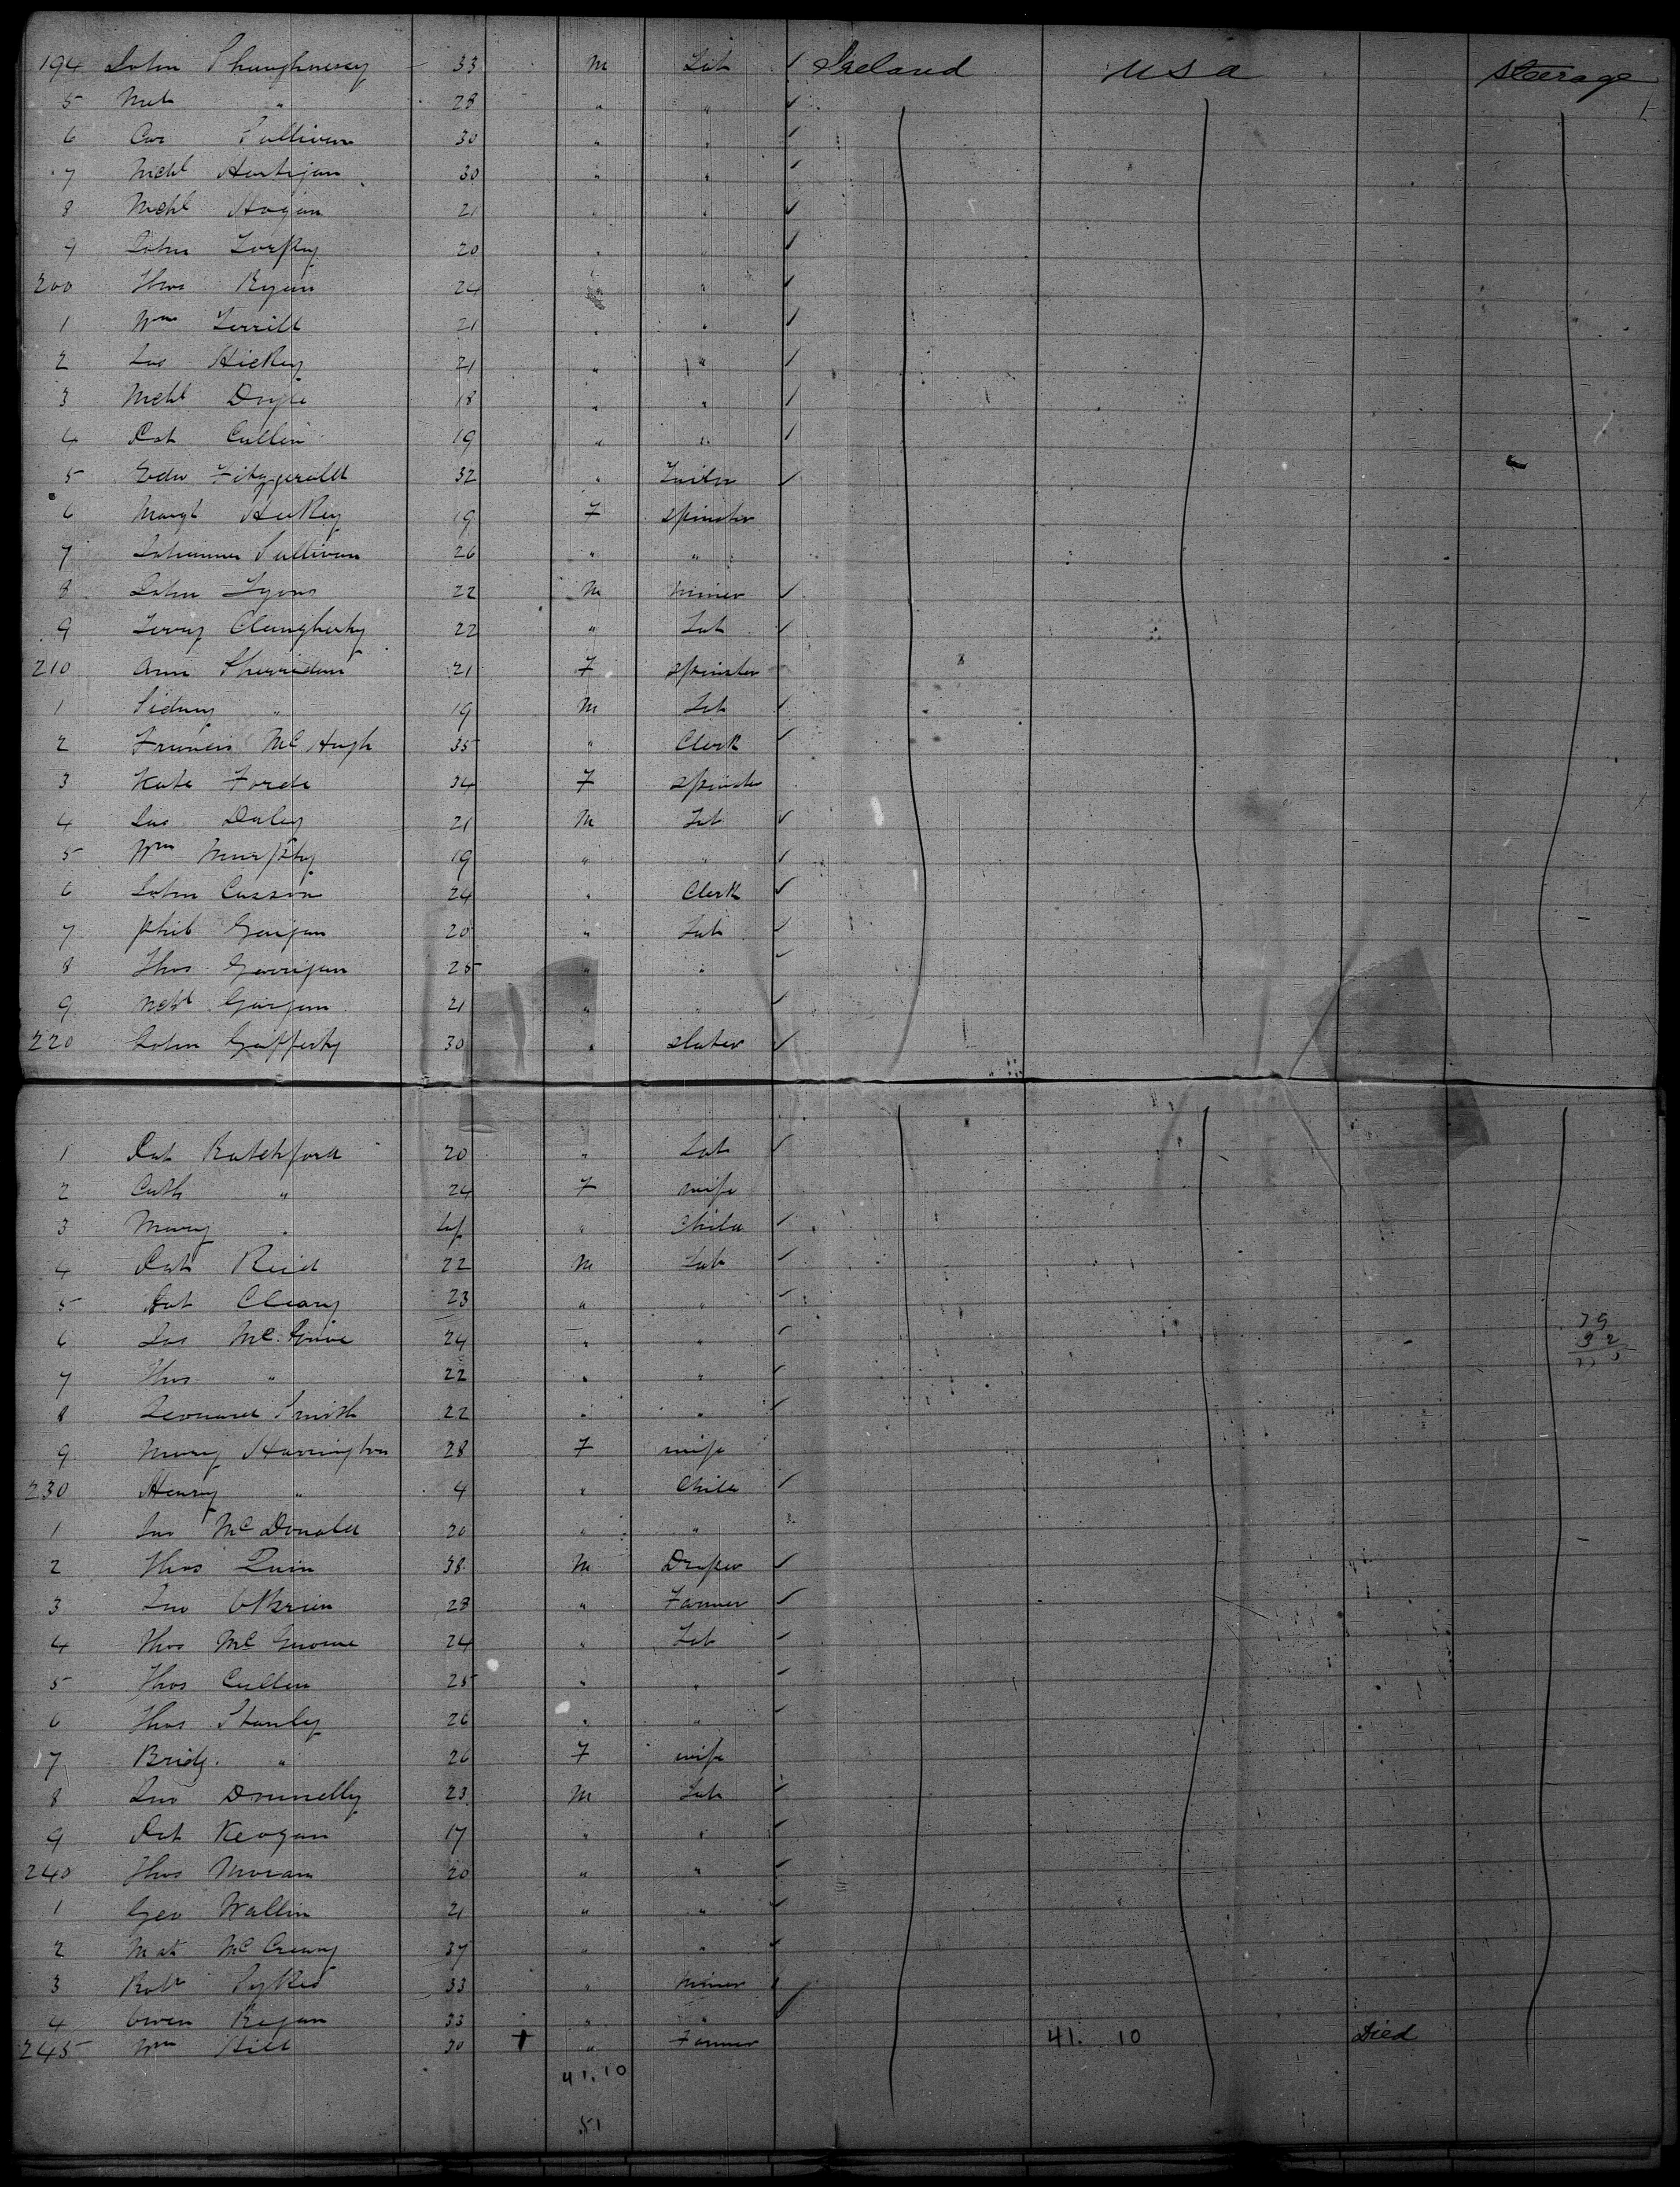 194 John Shaughnessy 33 M Lab ✓ Ireland USA Steerage
5 Mich " 28 " " ✓
6 Sullivan 30 " " ✓
7 Michl Hartigan 30 " " ✓
8 Michl Hogan 21 " " ✓
9 John 20 " " ✓
200 Thos Ryan 24 " " ✓
1 Wm 21 " " ✓
2 Jas Hickey 21 " " ✓
3 Michl Doyle 18 " " ✓
4 Pat Cullen 19 " " ✓
5 Edw Fitzgerald 32 " Tailor ✓
6 Margt Hickey 19 F Spinster
7 Johanna Sullivan 26 " "
8 John Lyons 22 M Miner ✓
9 22 " Lab ✓
210 Ann Sherridan 21 F Spinster
1 Sidney " 19 M Lab ✓
2 Francis McHugh 35 " Clerk ✓
3 Kate Forde 34 F Spinster
4 Jas Daley 21 M Lab ✓
5 Wm Murphy 19 " " ✓
6 John Cusson 24 " Clerk ✓
7 Phil 20 " Lab ✓
8 Thos Garrigan 25 " " ✓
9 Michl Gargan 21 " " ✓
220 John Gafferty 30 " Slater ✓
1 Pat Ratchford 20 " Lab ✓
2 Cath " 24 F Wife
3 Mary " Inf " Child ✓
4 Pat Reid 22 M Lab ✓
5 Pat Cleary 23 " " ✓
6 Jas 24 " " ✓
7 Thos " 22 " " ✓
8 Leonard Smith 22 " " ✓
9 Mary Harrington 28 F Wife
230 Henry " 4 " Child ✓
1 Jno McDonald 20 " "
2 Thos Quin 38 M Draper ✓
3 Jno OBrien 28 " Farmer ✓
4 Thos 24 " Lab ✓
5 Thos Cullen 25 " " ✓
6 Thos Stanley 26 " " ✓
7 Bridg. " 26 F Wife
8 Jno Donnelly 23 M Lab ✓
9 Pat Keogan 17 " " ✓
240 Thos Moran 20 " " ✓
1 Geo Wallin 21 " " ✓
2 Mat McCreary 37 " " ✓
3 Robt Sykes 33 " Miner ✓
4 Owen Regan 33 " " ✓
245 Wm Hill 30 + " Farmer 41. 10 Died
41.10
51